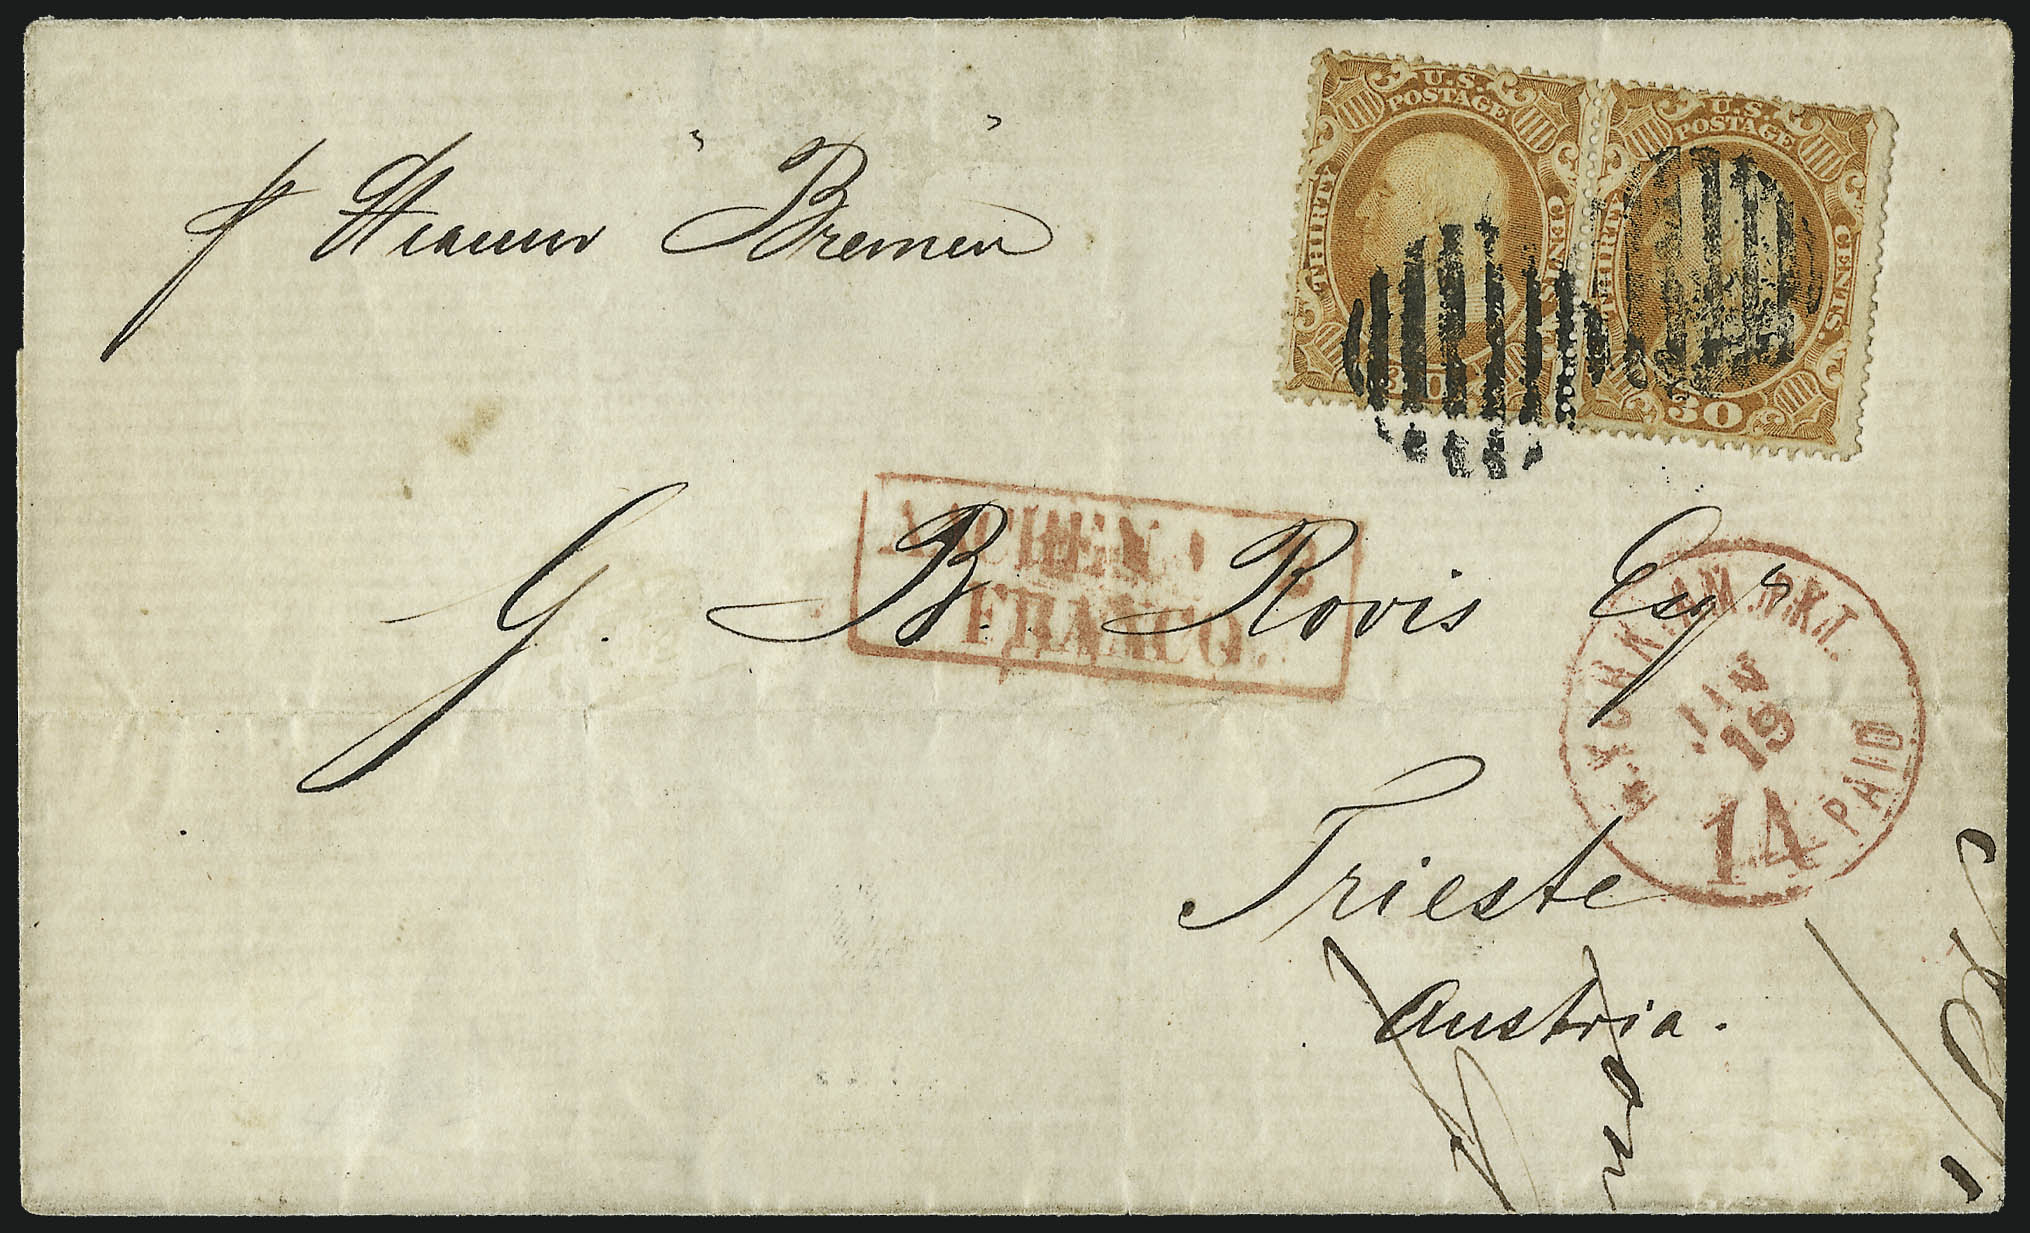 U.S.
POSTAGE
THIRTY
CENTS
30
U.S.
POSTAGE
THIRTY
CENTS.
30
pr Steamer "Bremen"
AACHEN
FRANCO.
G. B. Rovis Esqr
N. YORK. AM. PKT.
JUN
19
14
PAID
Trieste
Austria.